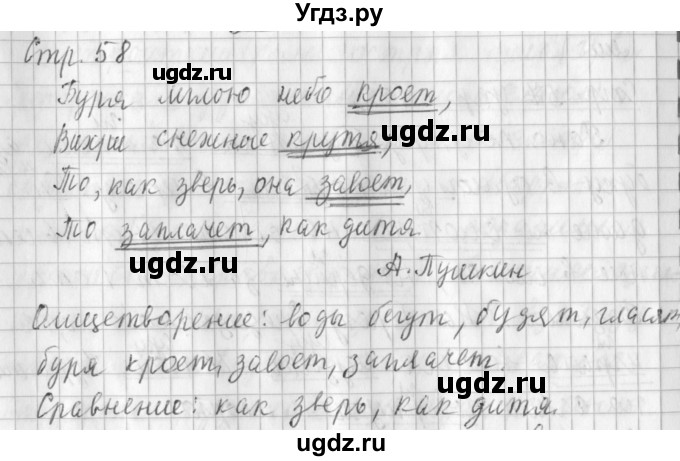 Угдз.ру
Стр. 58
Буря мглою небо кроет,
Вихри снежные крутя,
То, как зверь, она завоет,
То заплачет, как дитя.
А. Пушкин
Олицетворение: воды бегут, будят, гласят,
буря кроет, завоет, заплачет.
Сравнение: как зверь, как дитя.
ugdz.ru
ugdz.ru
ugdz.ru
ugdz.ru
ugdz.ru
ugdz.ru
ugdz.ru